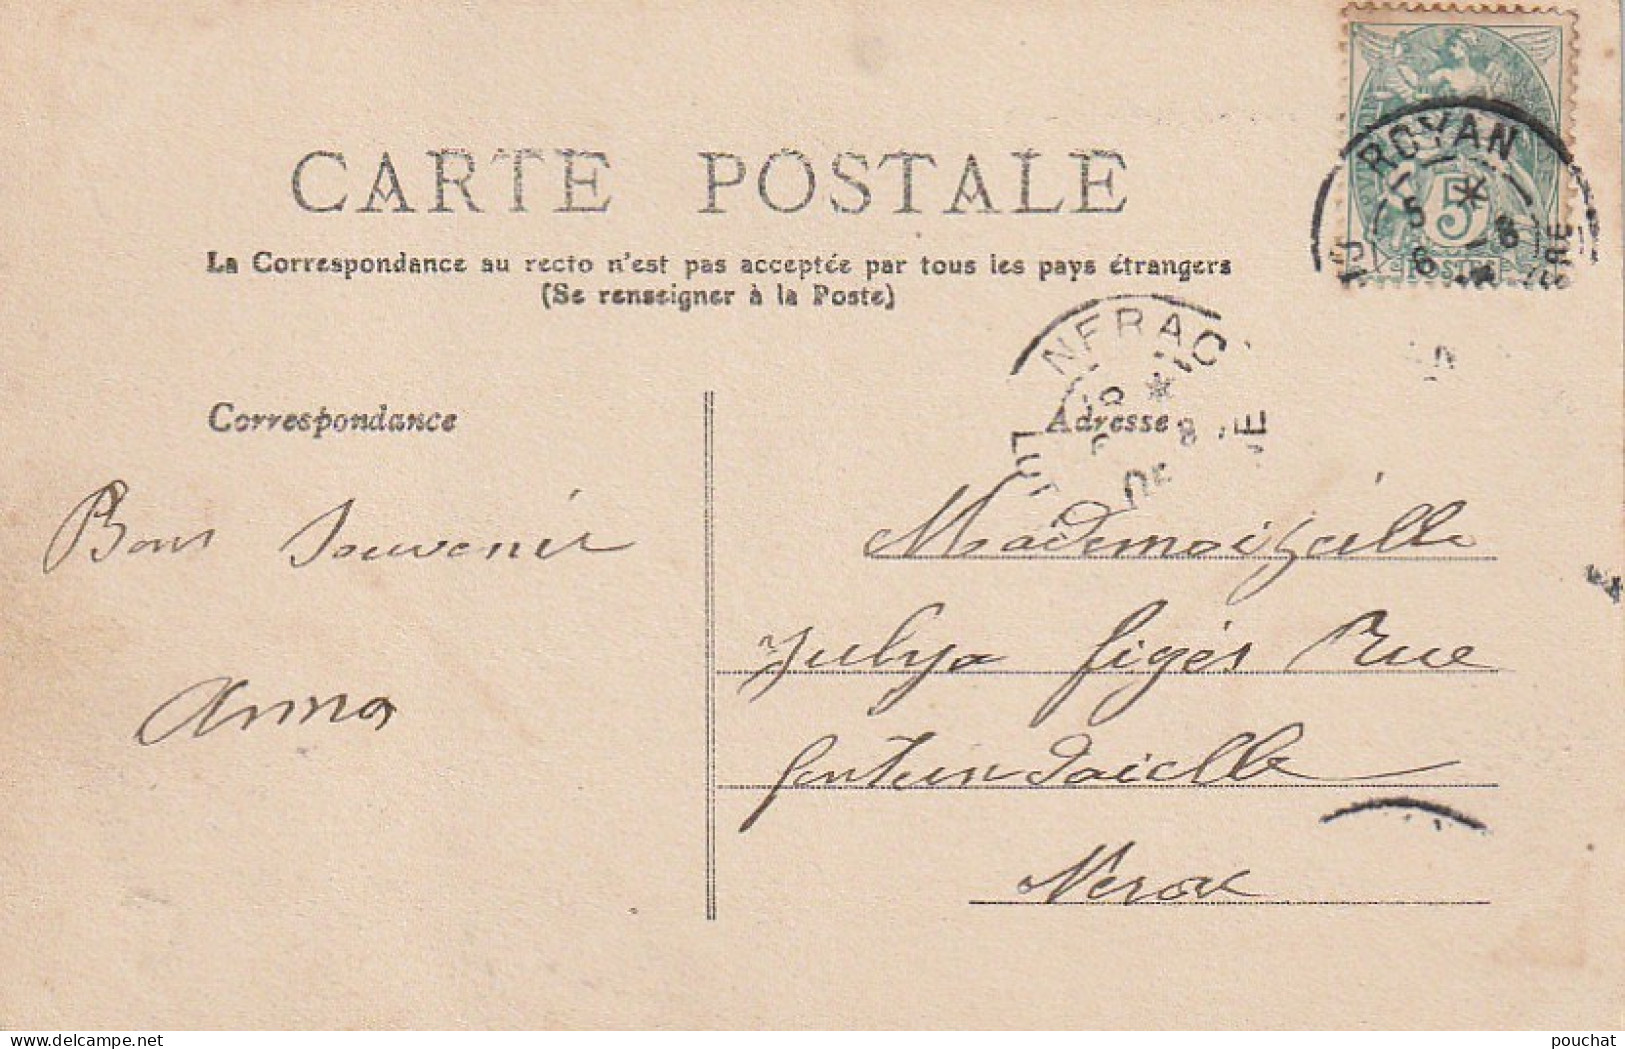 CARTE POSTALE
La Correspondance au recto n'est pas acceptée par tous les pays étrangers
(Se renseigner à la Poste)
ROYAN
5
POSTES
NERAC
Correspondance
Adresse
Bons Souvenir
Anna
Mademoizeille
Julya figés Rue
fontein daielle
Nerac
pouchat